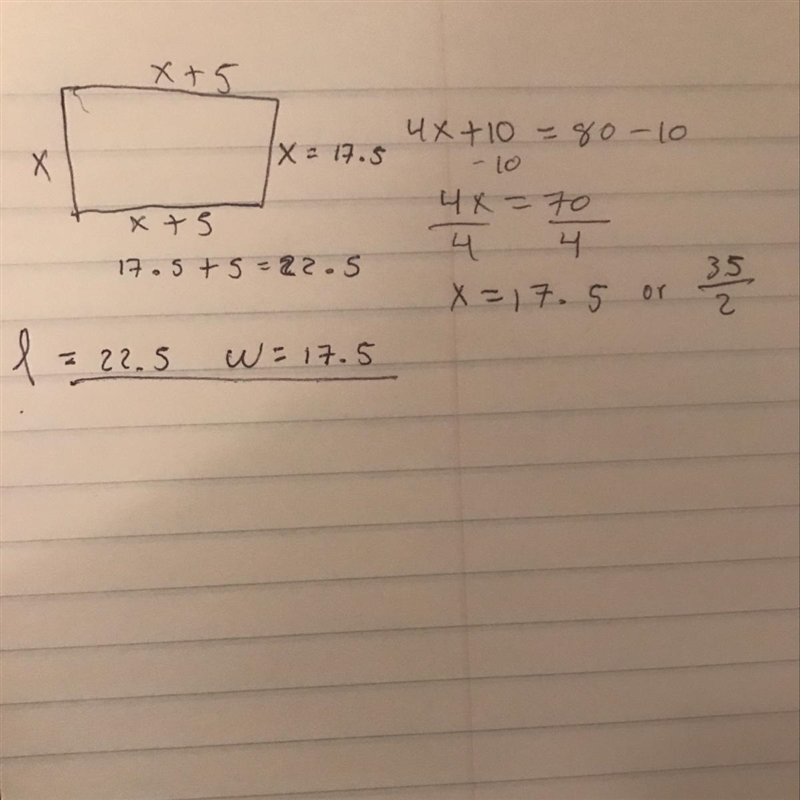 x + 5
x
x = 17.5
x + 5
17.5 + 5 = 22.5
l = 22.5 w = 17.5
4x + 10 = 80 - 10
- 10
4x = 70
4 4
x = 17.5 or 35/2